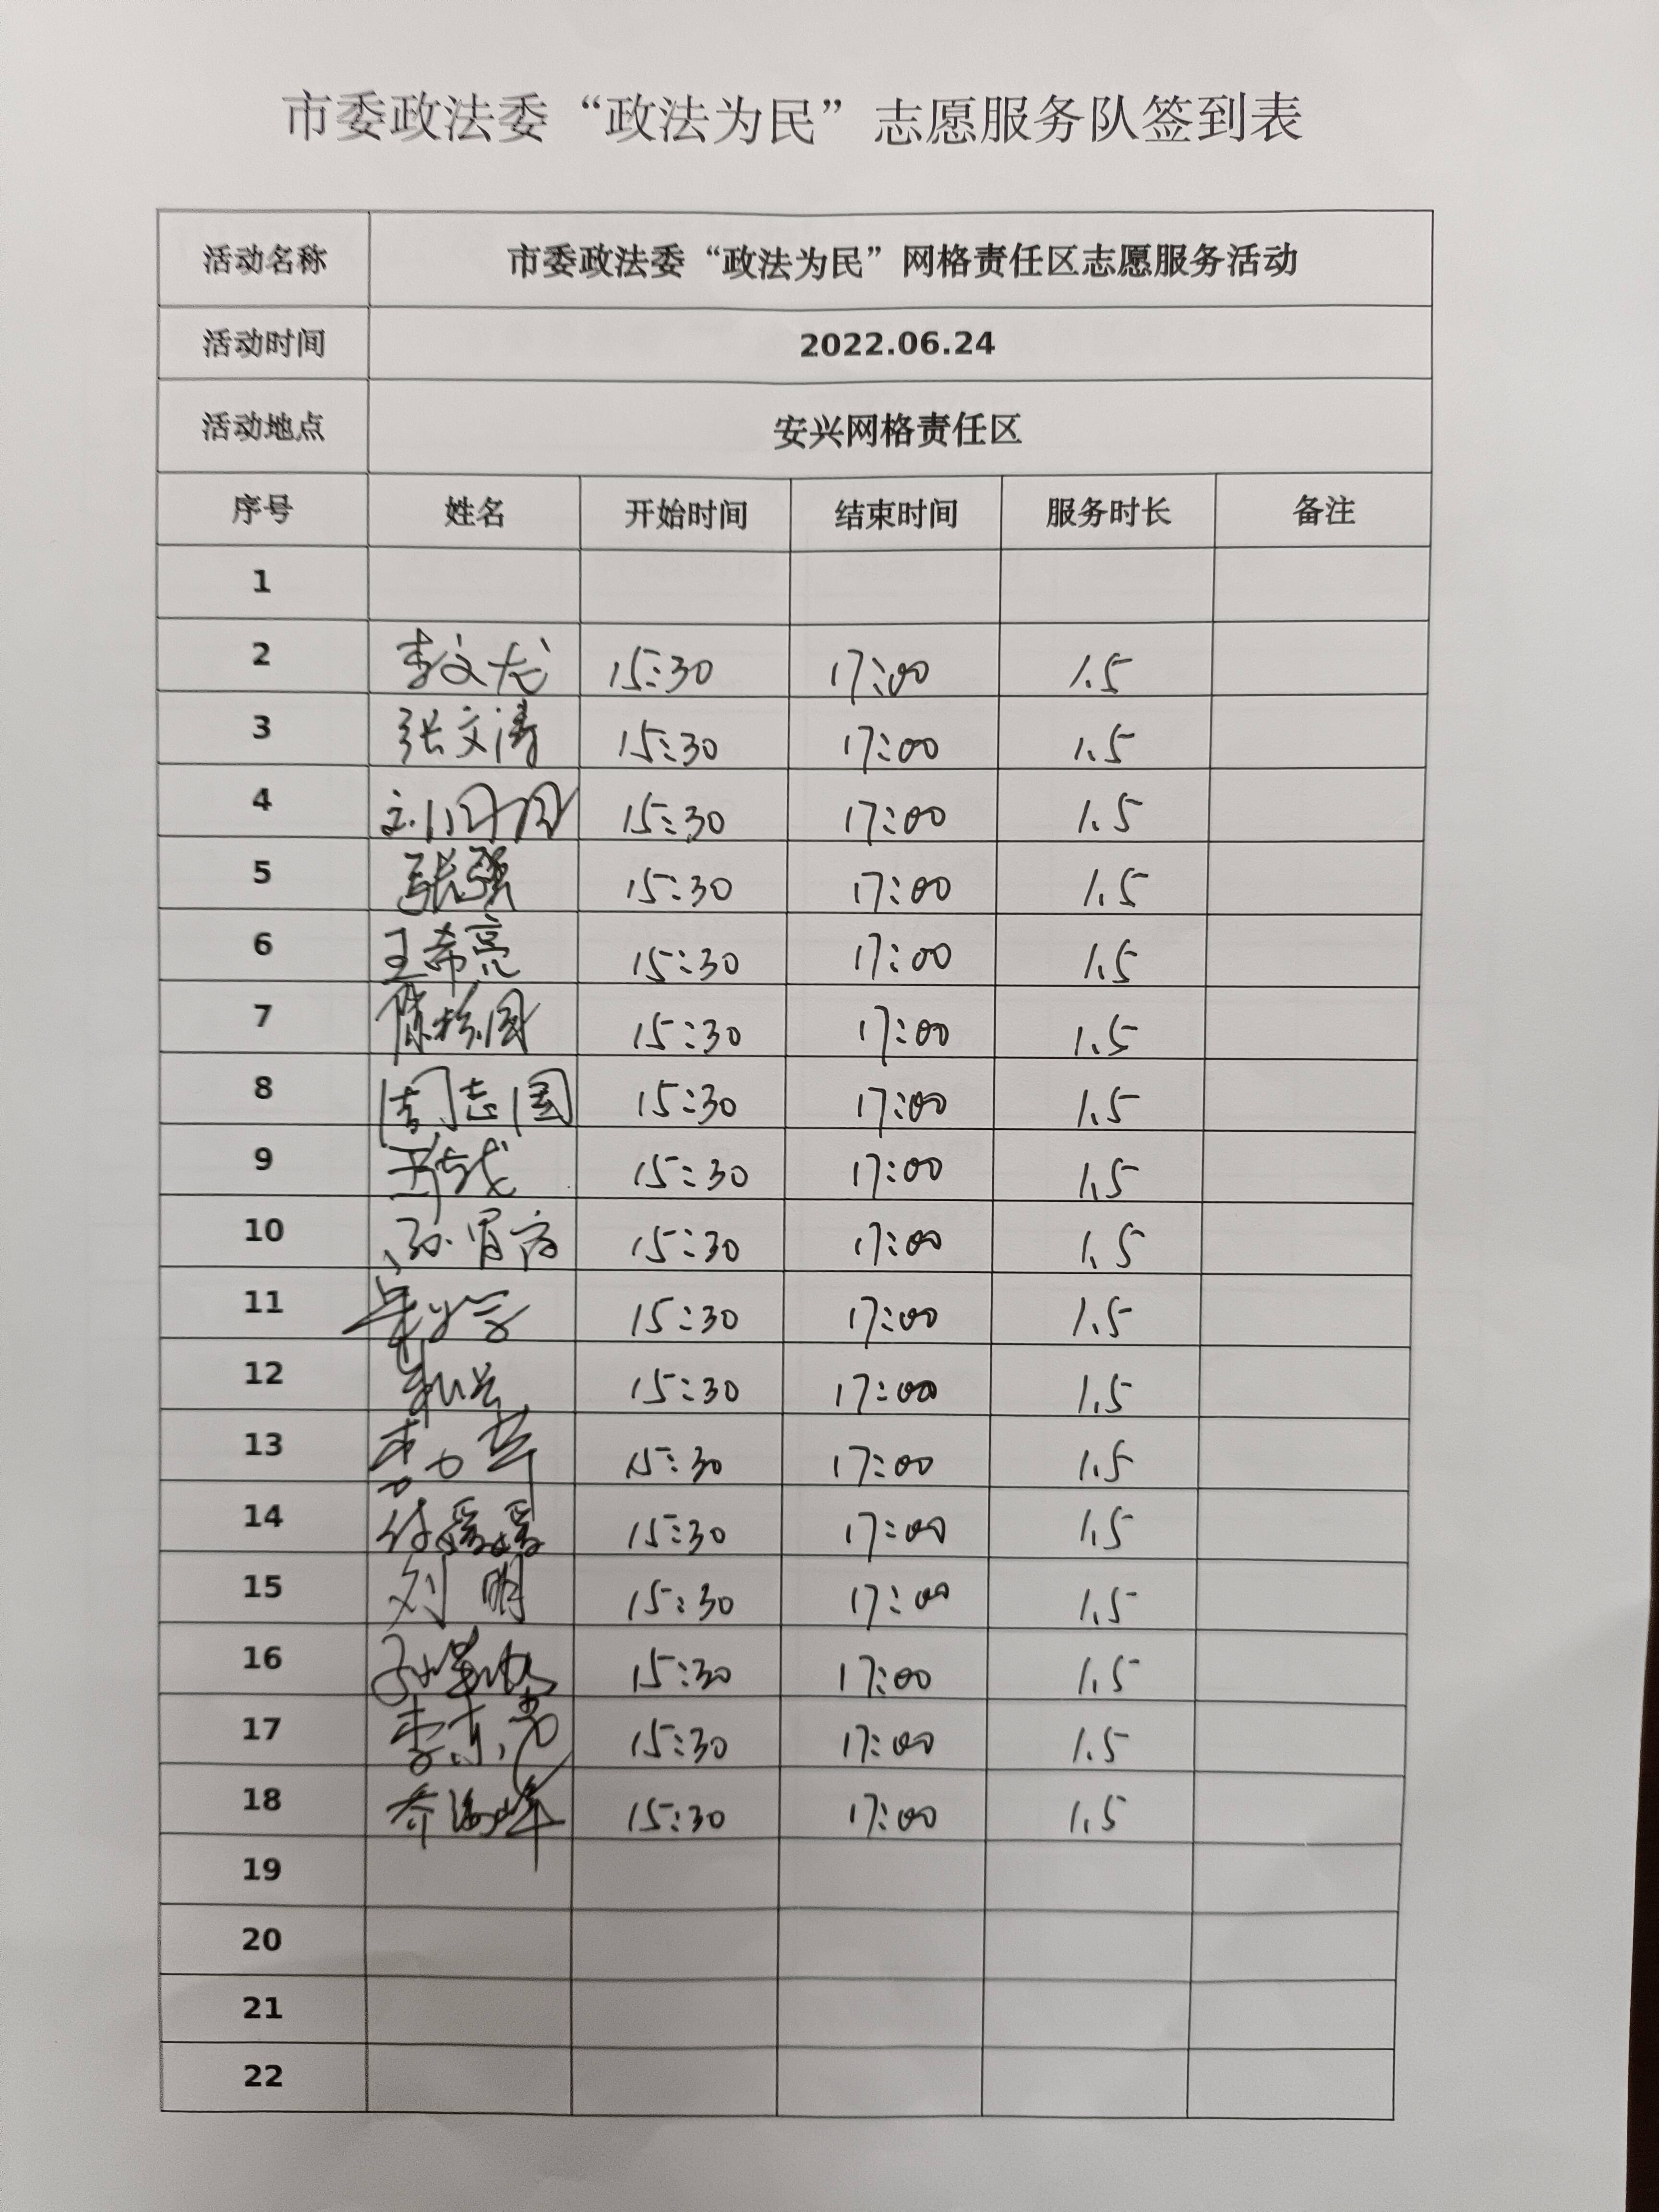 市委政法委“政法为民”志愿服务队签到表
活动名称 市委政法委“政法为民”网格责任区志愿服务活动
活动时间 2022.06.24
活动地点 安兴网格责任区
序号 姓名 开始时间 结束时间 服务时长 备注
1
2 李文龙 15:30 17:00 1.5
3 张文涛 15:30 17:00 1.5
4 15:30 17:00 1.5
5 张强 15:30 17:00 1.5
6 王希亮 15:30 17:00 1.5
7 15:30 17:00 1.5
8 周志国 15:30 17:00 1.5
9 15:30 17:00 1.5
10 15:30 17:00 1.5
11 15:30 17:00 1.5
12 15:30 17:00 1.5
13 15:30 17:00 1.5
14 付媛媛 15:30 17:00 1.5
15 刘明 15:30 17:00 1.5
16 15:30 17:00 1.5
17 李东亮 15:30 17:00 1.5
18 乔海峰 15:30 17:00 1.5
19
20
21
22